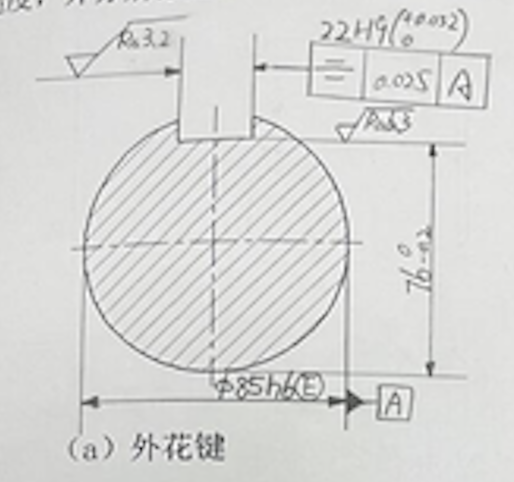 Ra3.2
22H9(+0.052 0)
⌯ 0.025 A
Ra6.3
76 0 -0.2
φ85h6Ⓔ
A
(a) 外花键